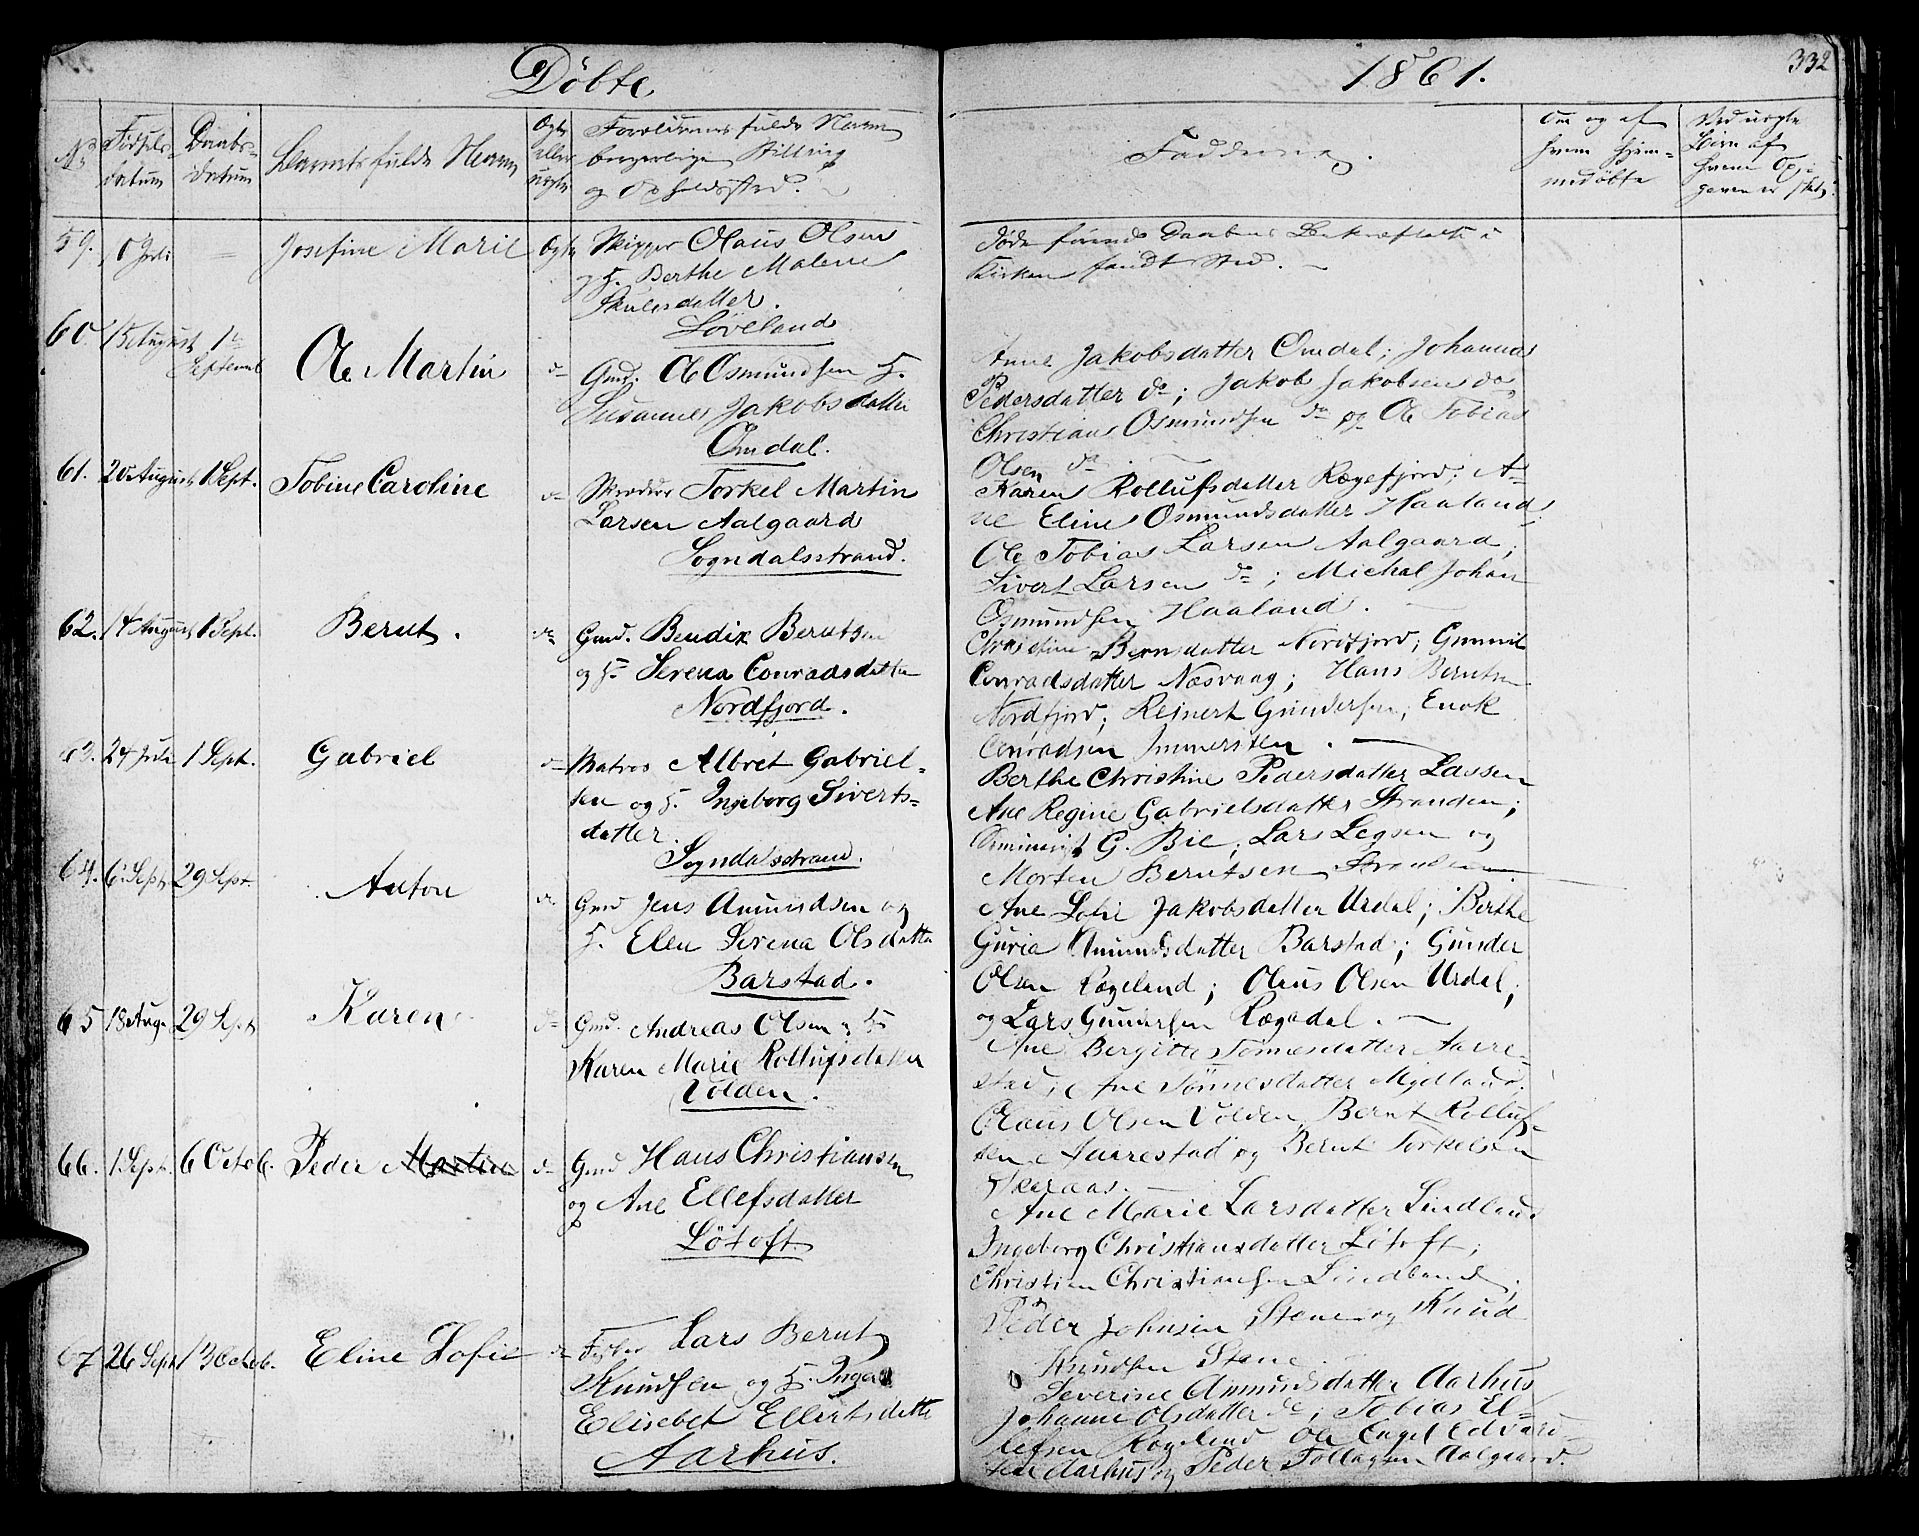 Döbte
1861.
332
No
Födsels
datum
Daabs-
datum
Barnets fulde Navn
Ægte
eller
uægte
Forældrenes fulde Navn
borgerlige Stilling
og Opholdssted.
Faddernes
Om og af
hvem hjem-
medöbte
Ved uægte
Börn af
hvem Op-
gaven er sket
59.
Juli
Josefine Marie
Ægte
Skipper Olaus Olsen
og H. Berthe Malene
Skulesdatter.
Løveland
Døde førend Daabens Bekræftelse i
Kirken fandt Sted.
60.
15 August
1ste
September
Ole Martin
do
Gmd. Ole Osmundsen H.
Susanne Jakobsdatter
Omdal.
Anne Jakobsdatter Omdal; Johanne
Pedersdatter do; Jakob Jakobsen do
Christian Osmundsen do og Ole Tobias
Olsen do.
61.
20 August
1 Sept.
Tobine Caroline
do
Skræder Torkel Martin
Larsen Aalgaard
Sogndalsstrand.
Karen Rollufsdatter Rægefjord; A-
ne Eline Osmundsdatter Haaland;
Ole Tobias Larsen Aalgaard;
Sivert Larsen do; Michal Johan
Osmundsen Haaland.
62.
14 August
1 Sept.
Bernt.
do
Gmd. Bendix Berntsen
og H. Serena Conradsdatter
Nordfjord.
Christine Bernsdatter Nordfjord; Gunnil
Conradsdatter Næsvaag; Hans Berntsen
Nordfjord; Reinert Gundersen; Enok
Conradsen Immersten.
63.
24 Juli
1 Sept.
Gabriel
do
Matros Albret Gabriel-
sen og H. Ingeborg Siverts-
datter.
Sogndalsstrand.
Berthe Christine Pedersdatter Lassen
Ane Regine Gabrielsdatter Stranden;
G. Bie; Lars Legsen og
Morten Berntsen Stranden.
64.
6 Sept.
29 Sept.
Anton
do
Gmd Jens Anundsen og
H. Elen Serena Olsdatter
Barstad.
Ane Sofie Jakobsdatter Urdal; Berthe
Guria Anundsdatter Barstad; Gunder
Olsen Rægeland; Olaus Olsen Urdal;
og Lars Gundersen Rægadal.
65
18 Aug.
29 Sept
Karen
do
Gmd. Andreas Olsen & H.
Karen Marie Rollufsdatter
Volden.
Ane Bergitte Tønnesdatter Aarre-
stad; Ane Tønnesdatter Mydland;
Olaus Olsen Volden, Bernt Rolluf-
sen Aarrestad og Bernt Torkelsen
Skeraas.
66.
1 Sept.
6 Octob.
Peder Martin
do
Gmd Hans Christiansen
og Ane Ellefsdatter
Lötoft.
Ane Marie Larsdatter Lindland
Ingeborg Christiansdatter Lötoft;
Christian Christiansen Lindland,
Peder Johnsen Stene og Knud
Knudsen Stene.
67
26 Sept
13 Octob.
Eline Sofie
do
Fisker Lars Bernt
Knudsen og H. Inger
Elisebet Ellertsdatter
Aarhus.
Severine Anmundsdatter Aarhus
Johanne Olsdatter do; Tobias El-
lefsen Rægeland Ole Engel Edvard-
sen Aarhus og Peder Tollagsen Aalgaard.